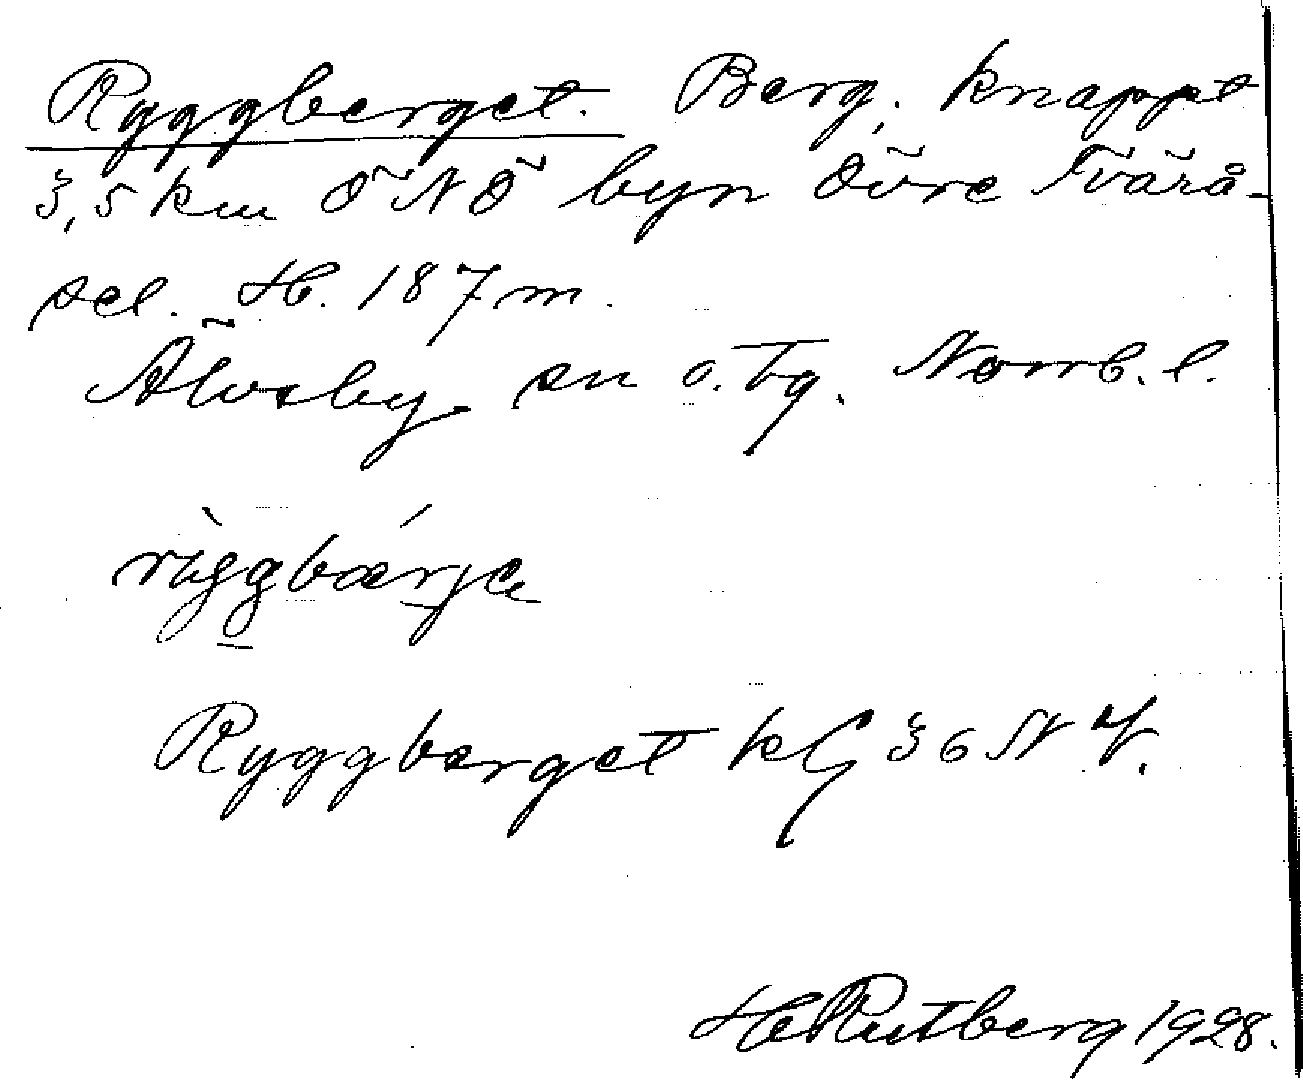 Ryggberget. Berg, knappt
3,5 km ÖNÖ byn Övre Tvärå-
sel. H. 187 m.
Älvsby sn o. tg. Norrb. l.
Ryggberget kbl 36 NV.
HRutberg 1928.